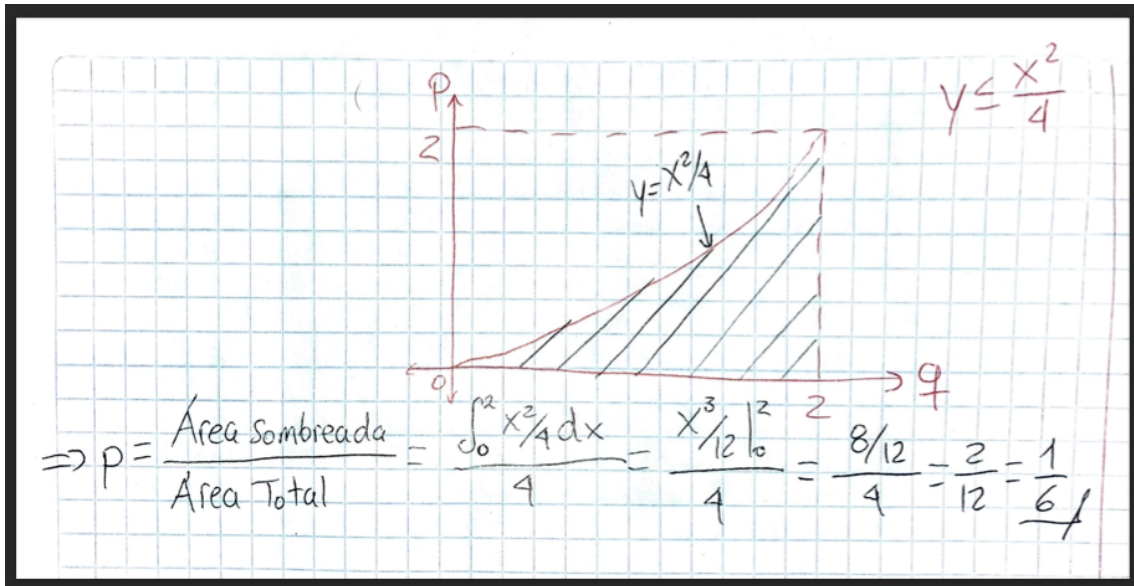 P
y ≤ x²/4
2
y=x²/4
0
2
q
⇒ p = Área Sombreada / Área Total = ∫₀² x²/4 dx / 4 = x³/12 |₀² / 4 = 8/12 / 4 = 2/12 = 1/6